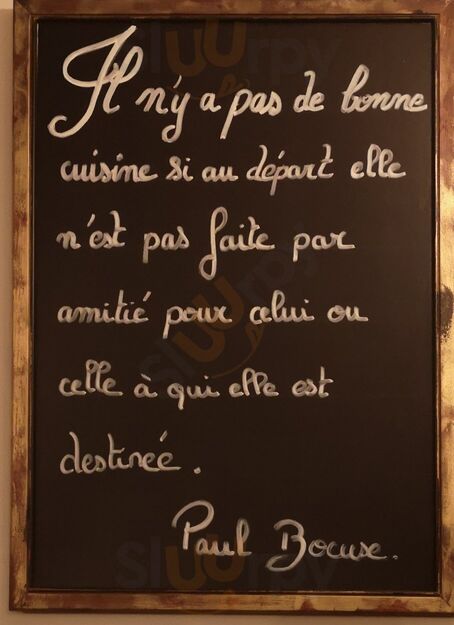 Il n'y a pas de bonne
cuisine si au départ elle
n'est pas faite par
amitié pour celui ou
celle à qui elle est
destinée.
Paul Bocuse.
sluurpy
sluurpy
sluurpy
sluurpy